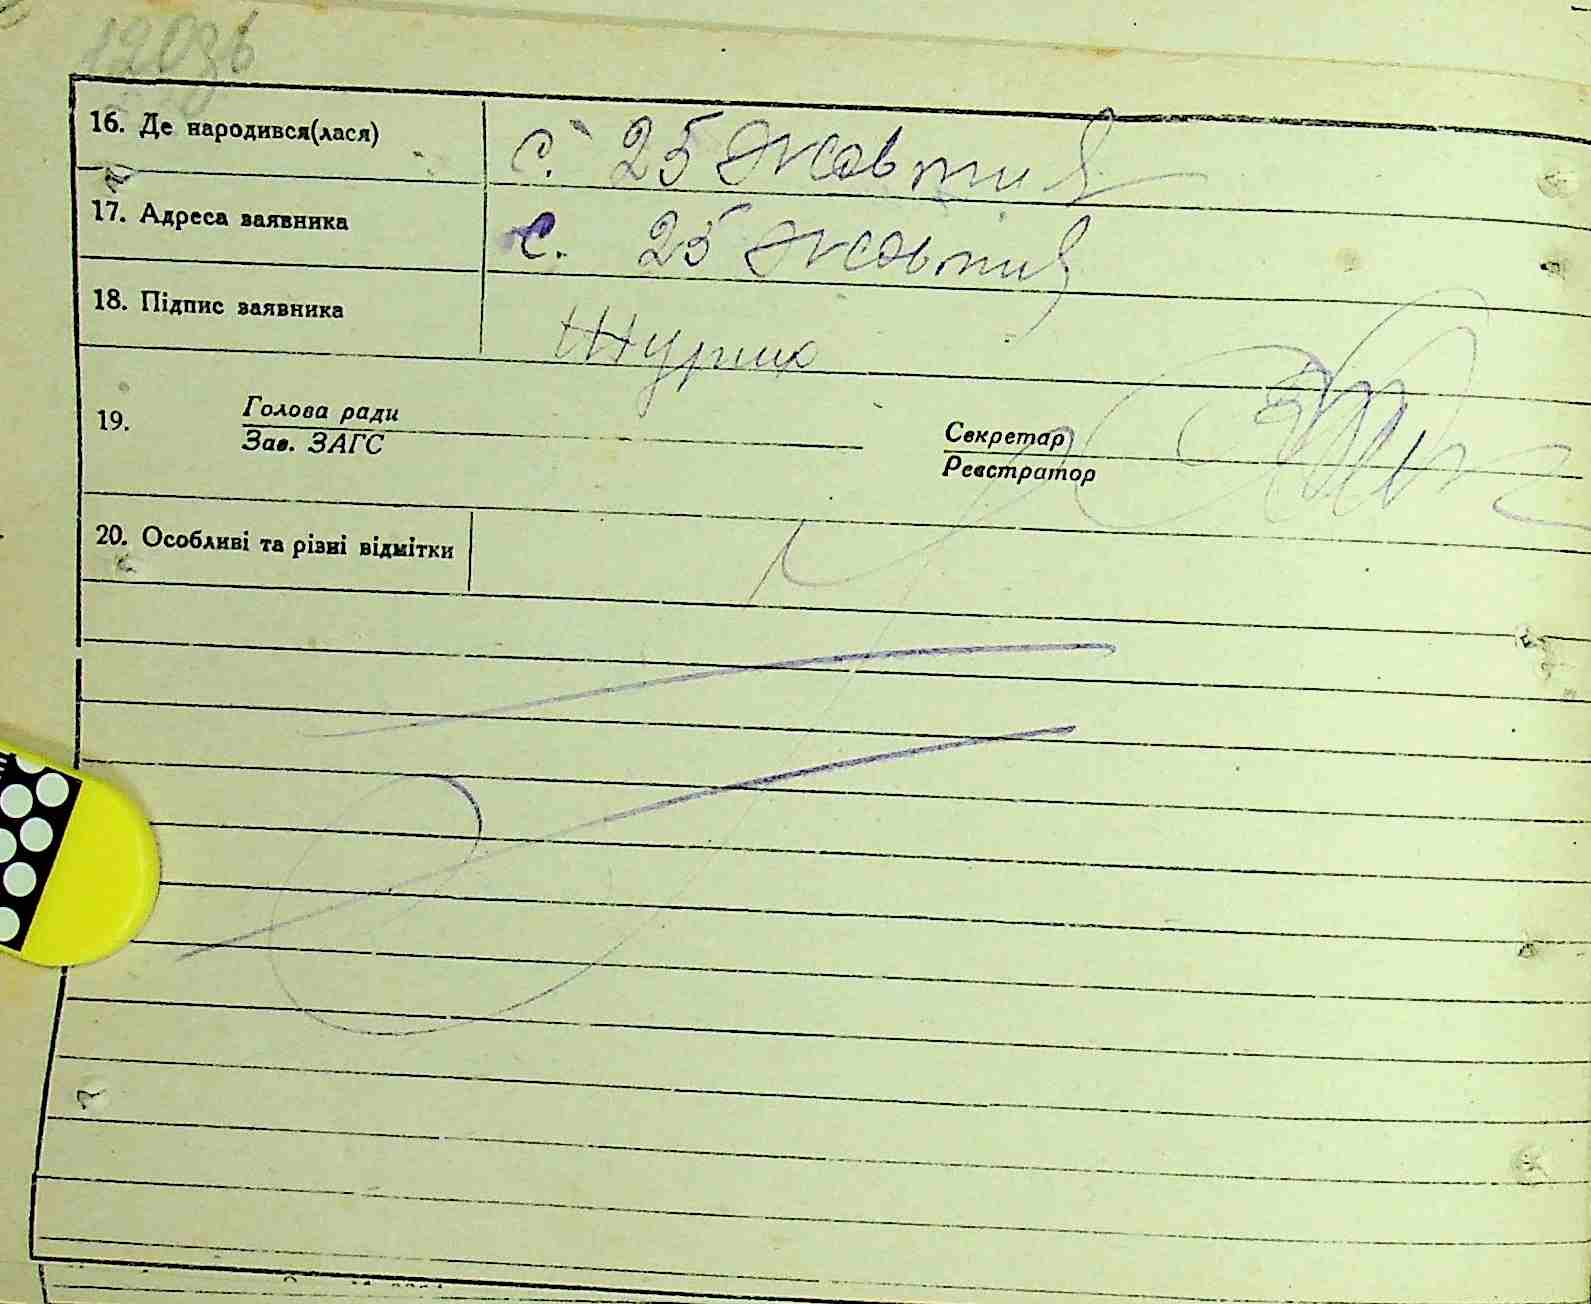 16. Де народився(лася) с. 25 Жовтня
17. Адреса заявника с. 25 Жовтня
18. Підпис заявника
19. Голова ради Секретар
Зав. ЗАГС Реєстратор
20. Особливі та різні відмітки